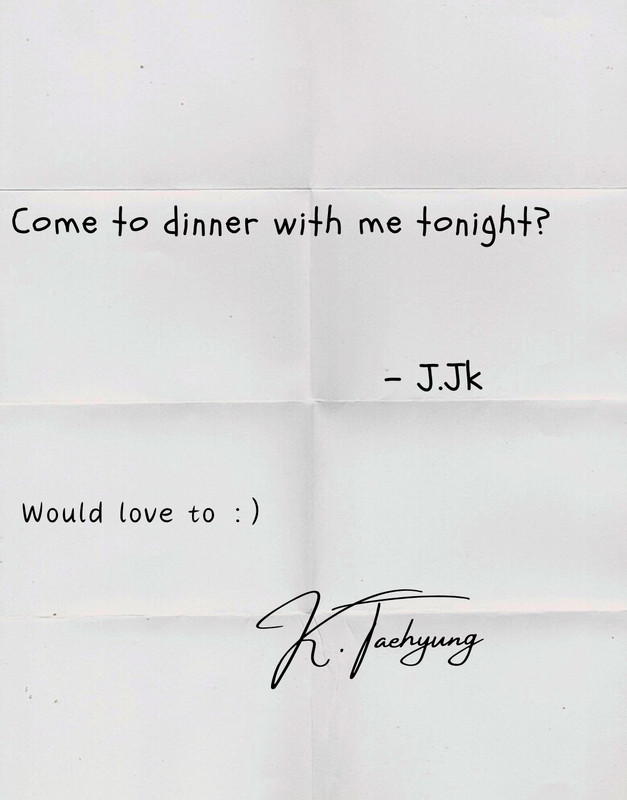 Come to dinner with me tonight?
- J.Jk
Would love to :)
K. Taehyung